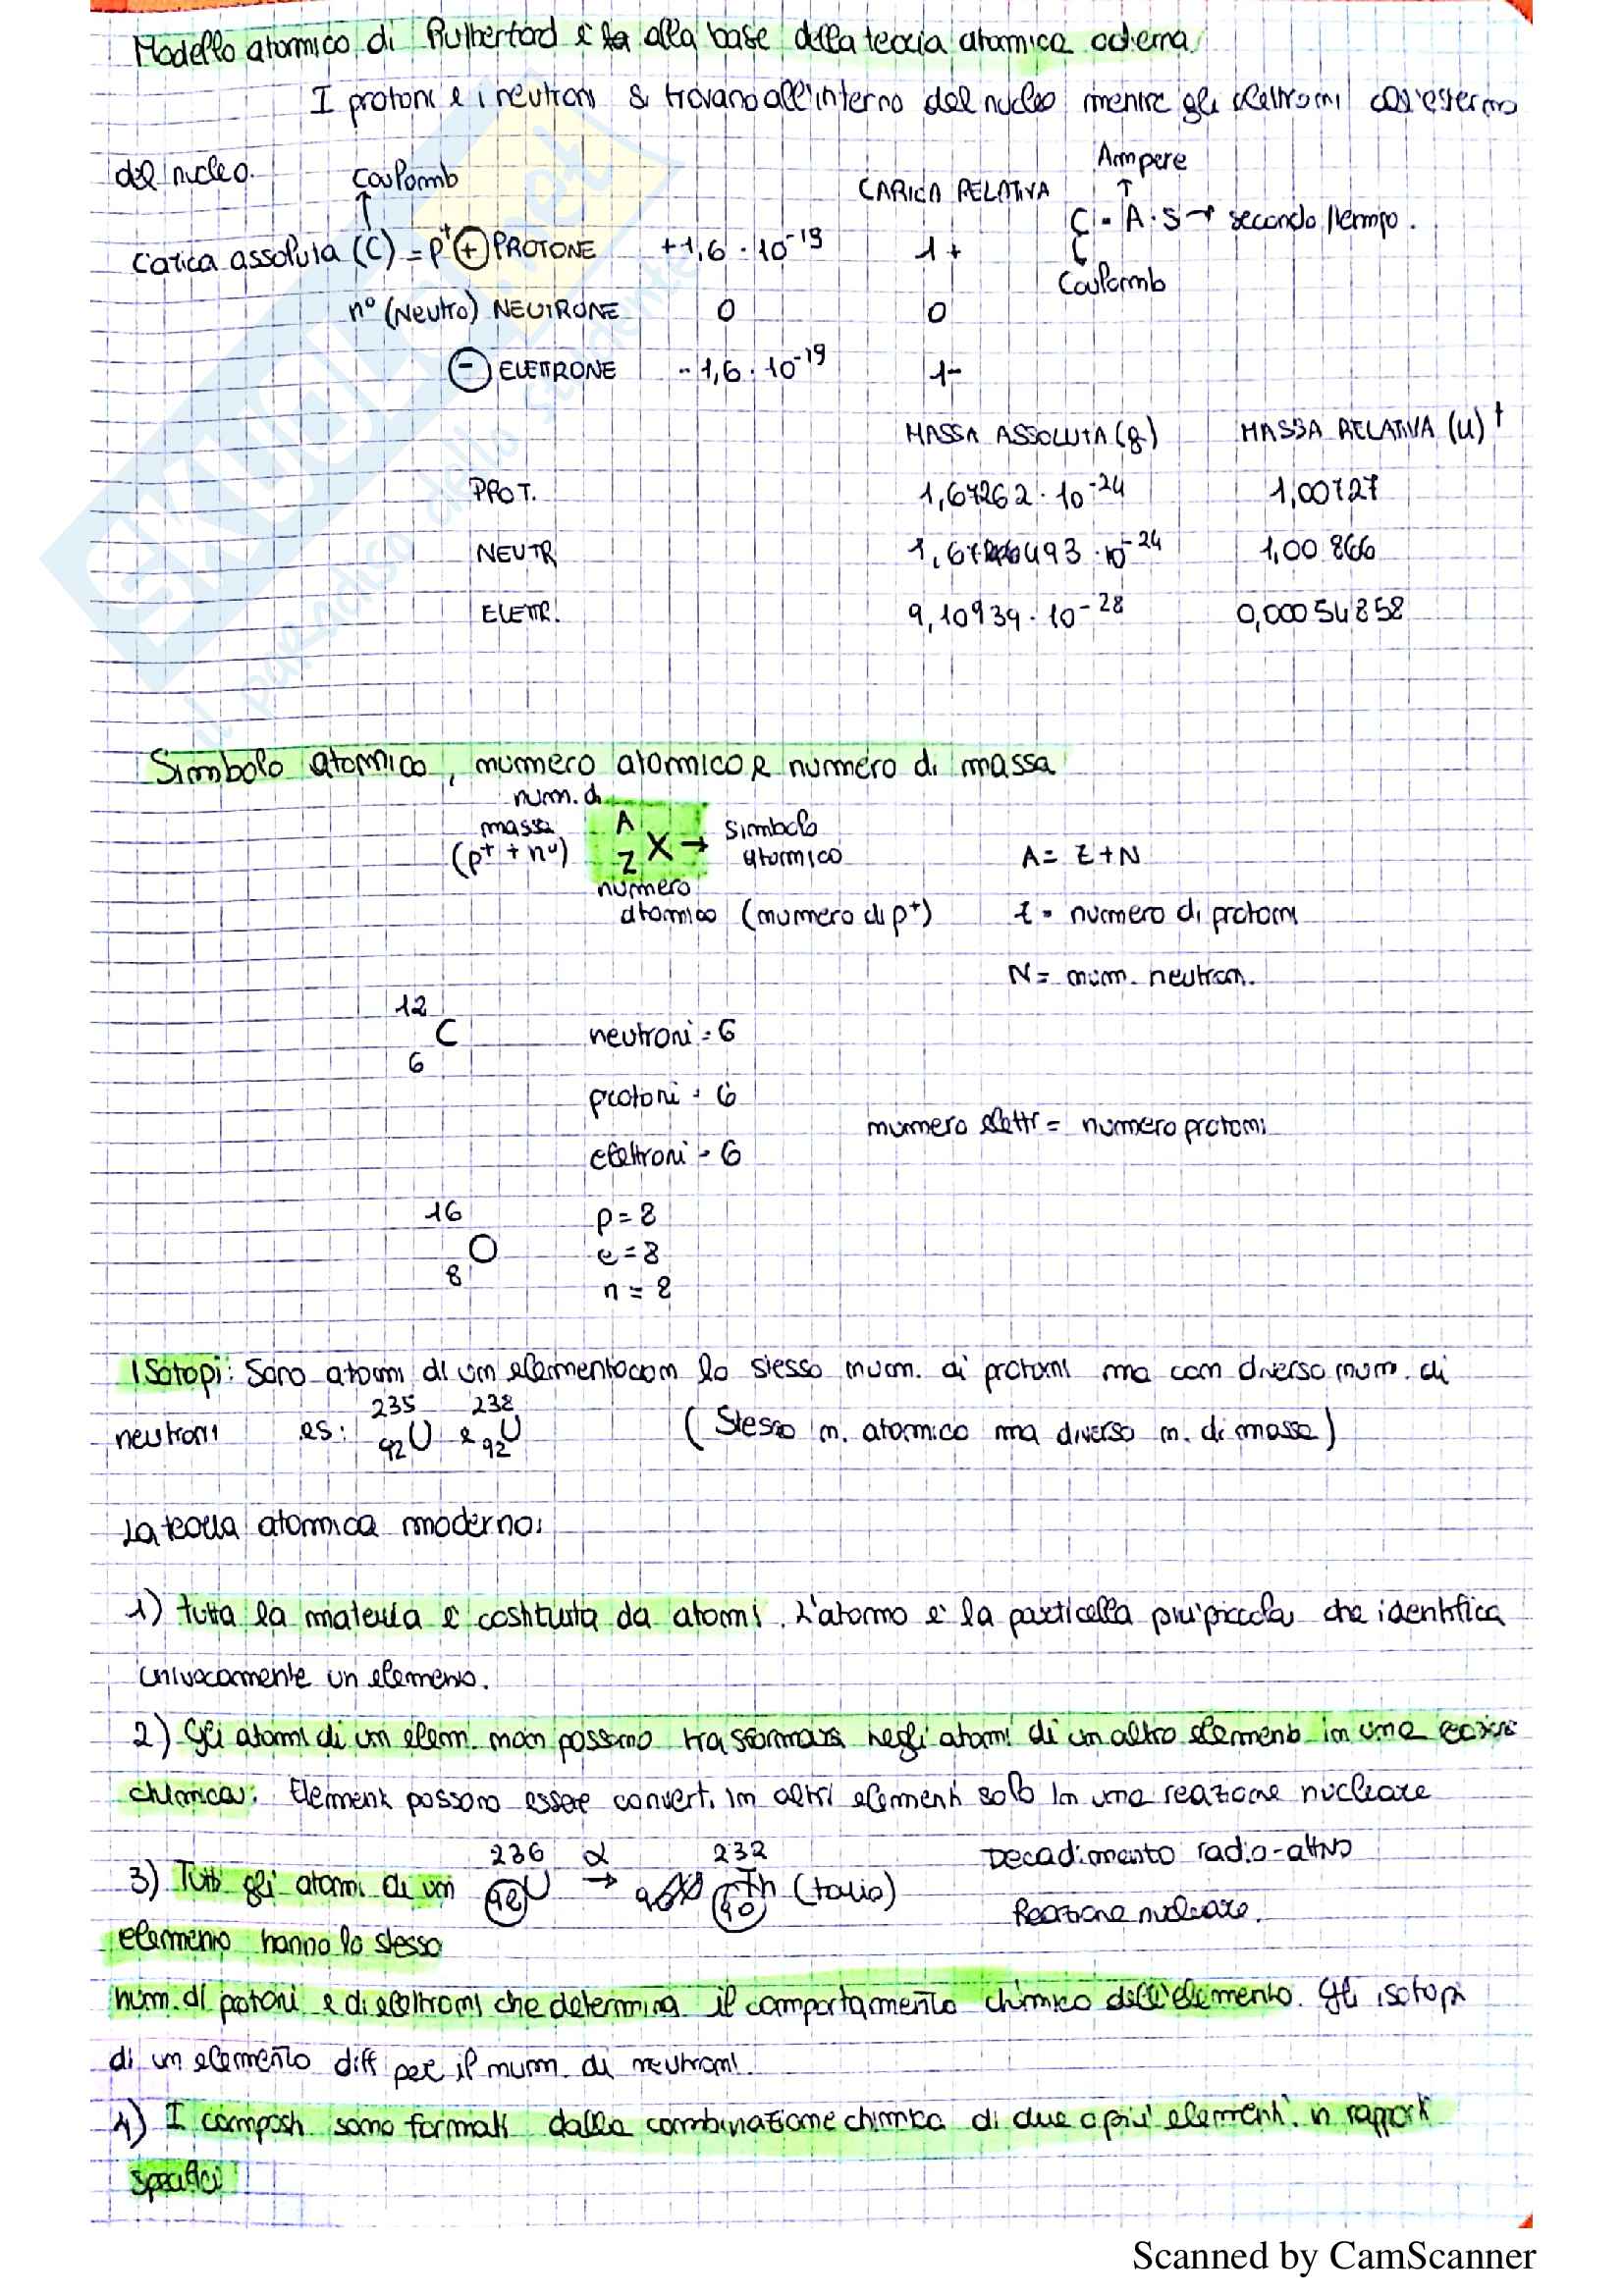 Modello atomico di Rutherford è alla base della teoria atomica odierna
I protoni e i neutroni si trovano all'interno del nucleo mentre gli elettroni all'esterno
del nucleo.
Coulomb
CARICA RELATIVA
Ampere
C = A · s → secondo/tempo.
Coulomb
Carica assoluta (C) = p⁺ (+) PROTONE +1,6 · 10⁻¹⁹ 1+
n° (Neutro) NEUTRONE 0 0
(-) ELETTRONE -1,6 · 10⁻¹⁹ 1-
MASSA ASSOLUTA (g) MASSA RELATIVA (u)
PROT. 1,67262 · 10⁻²⁴ 1,00727
NEUTR 1,67493 · 10⁻²⁴ 1,00866
ELETTR. 9,10939 · 10⁻²⁸ 0,00054858
Simbolo atomico, numero atomico e numero di massa
num. di
massa
(p⁺ + n°)
A
Z X → simbolo
atomico
numero
atomico (numero di p⁺)
A = Z + N
Z = numero di protoni
N = num. neutroni.
12
C
6
neutroni = 6
protoni = 6
elettroni = 6
numero elettr = numero protoni
16
O
8
p = 8
e = 8
n = 8
Isotopi: Sono atomi di un elemento con lo stesso num. di protoni ma con diverso num. di
neutroni es: ²³⁵₉₂U e ²³⁸₉₂U (Stesso n. atomico ma diverso n. di massa)
La teoria atomica moderna:
1) tutta la materia è costituita da atomi. L'atomo è la particella più piccola che identifica
univocamente un elemento.
2) Gli atomi di un elem. non possono trasformarsi negli atomi di un altro elemento in una
chimica: Elementi possono essere convert. in altri elementi solo in una reazione nucleare
236 α 232
3) Tutti gli atomi di un 92 U → 90 Th (torio)
Decadimento radio-attivo
Reazione nucleare.
elemento hanno lo stesso
num. di protoni e di elettroni che determina il comportamento chimico dell'elemento. Gli isotopi
di un elemento diff per il num. di neutroni.
4) I composti sono formati dalla combinazione chimica di due o più elementi in rapporti
specifici
SKUOLA.net
il paradiso dello studente
Scanned by CamScanner